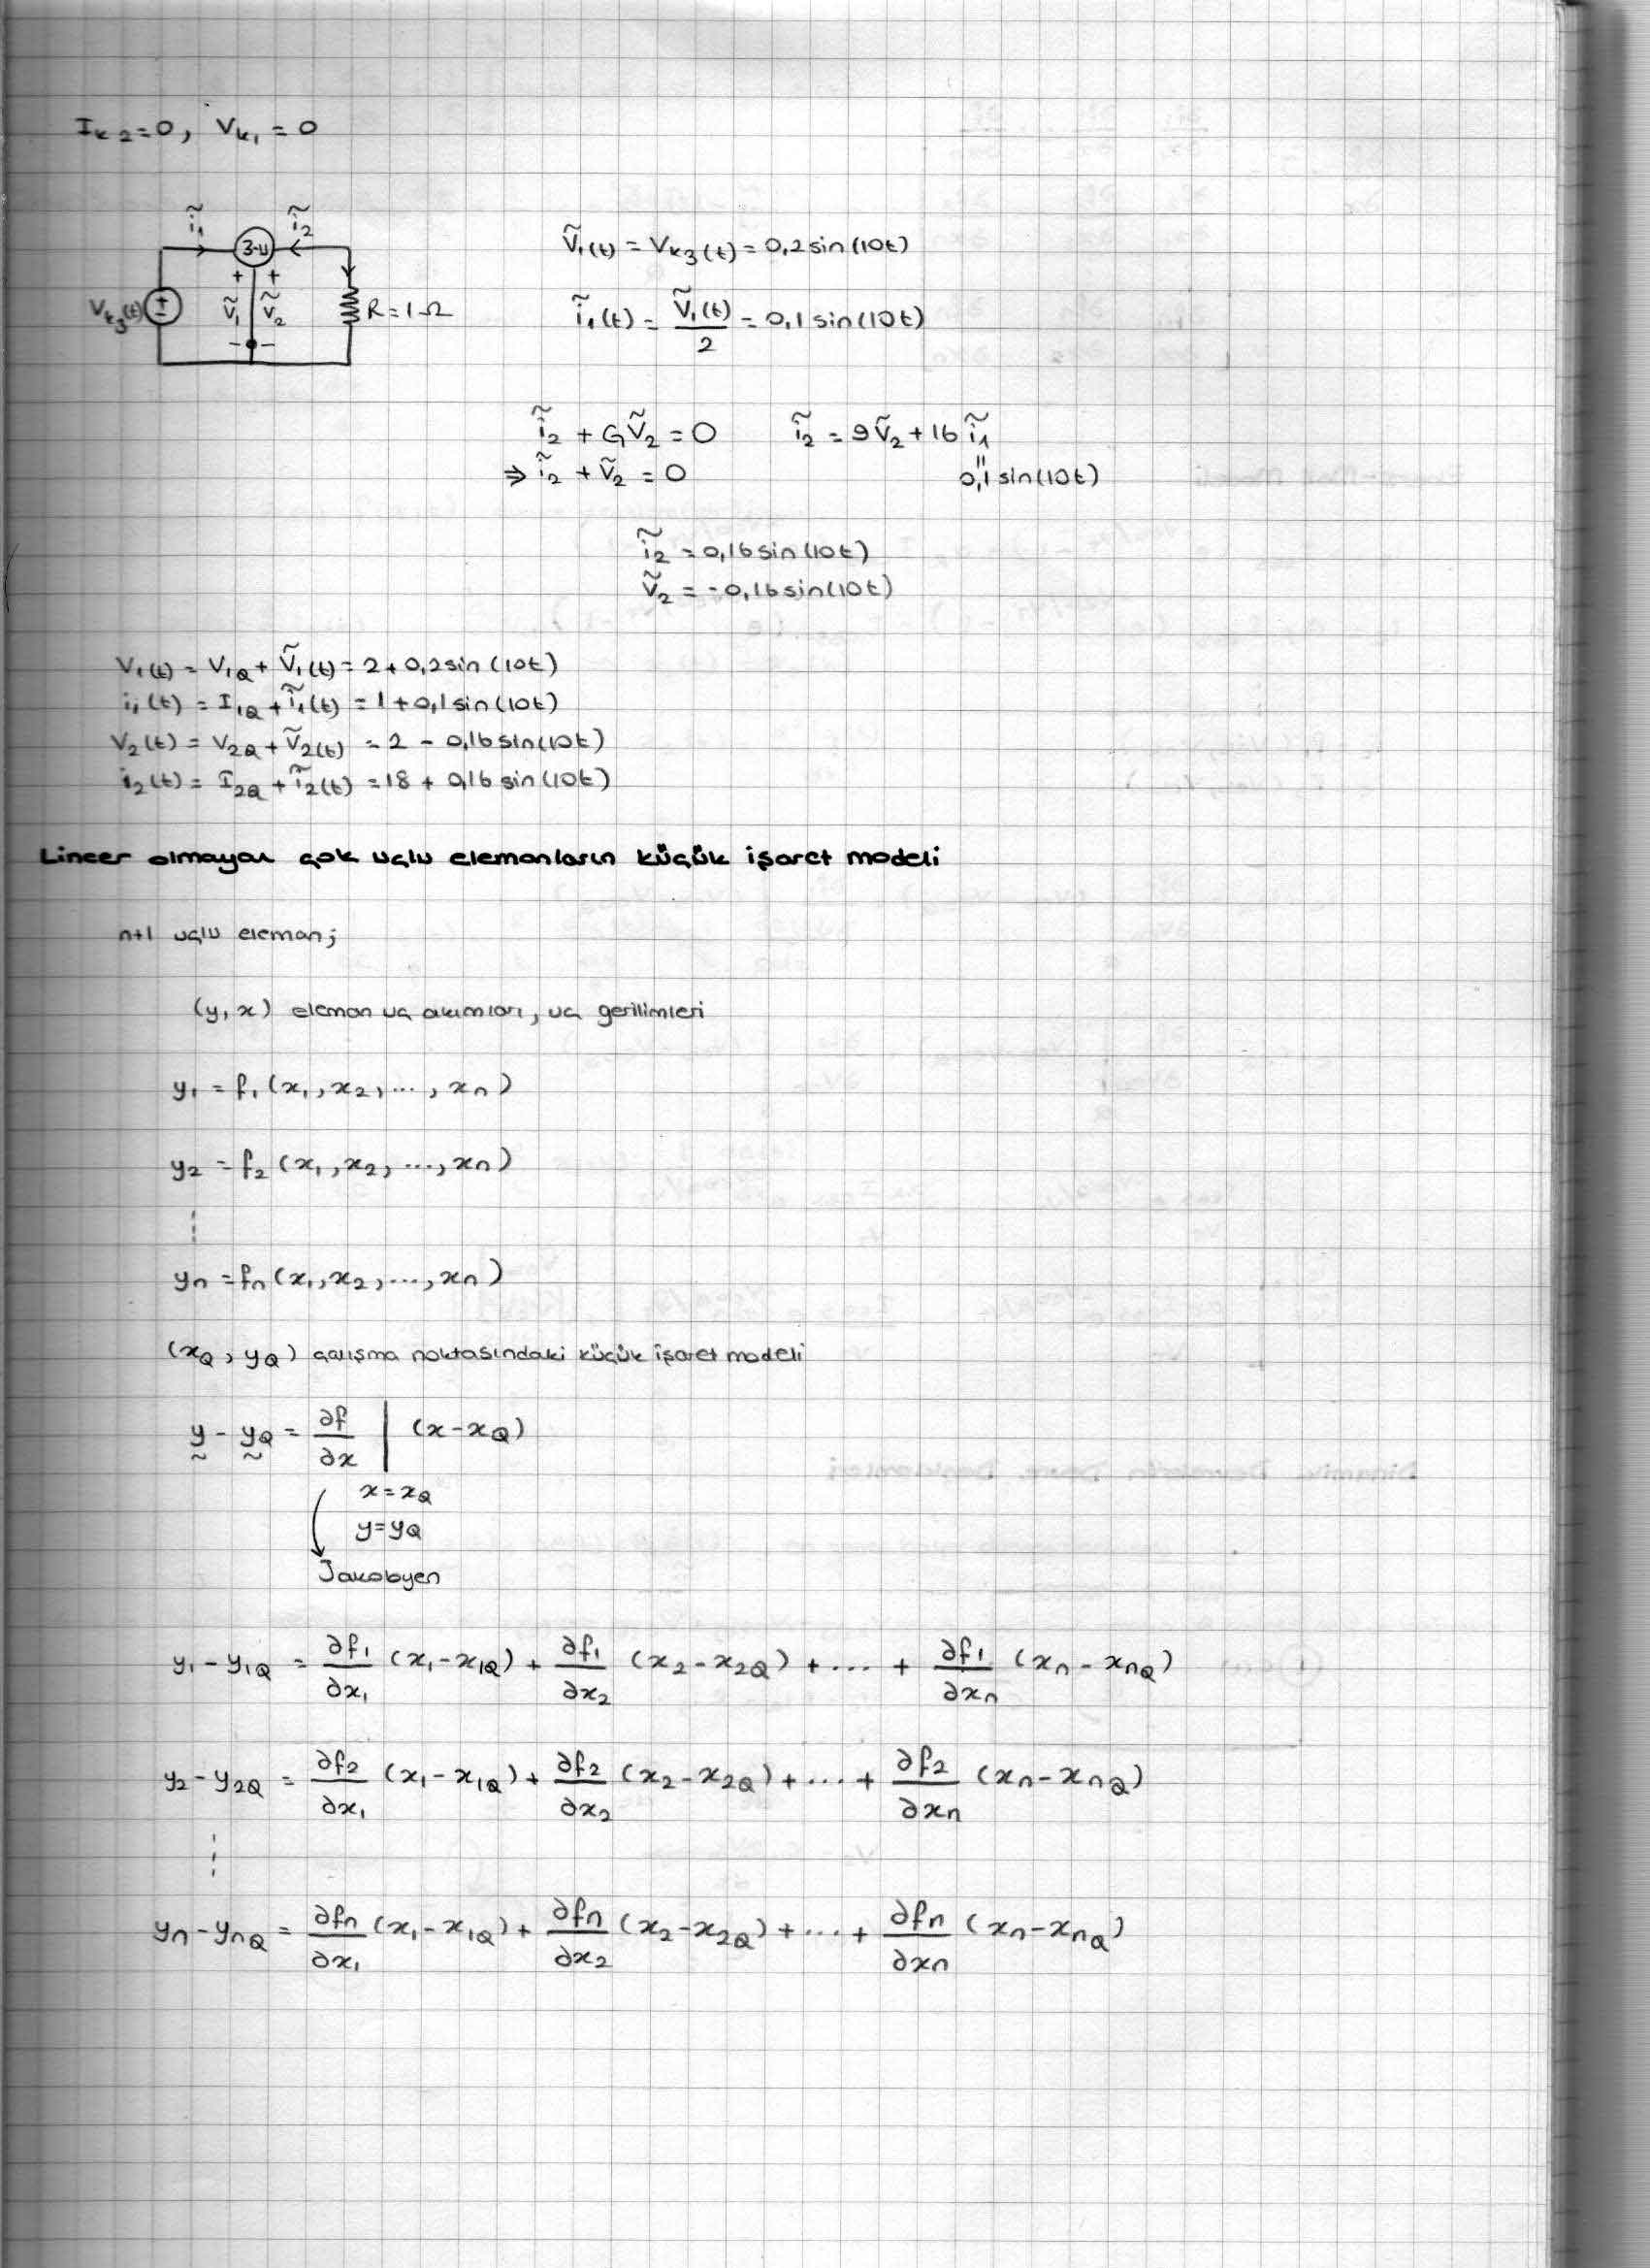 I_k2 = 0, V_k1 = 0
ĩ₁ ĩ₂
3-u
+ +
V_k3(t) ± ṽ₁ ṽ₂ R=1Ω
- -
ṽ₁(t) = V_k3(t) = 0,2 sin(10t)
ĩ₁(t) = ṽ₁(t)/2 = 0,1 sin(10t)
ĩ₂ + Gṽ₂ = 0 ĩ₂ = 9ṽ₂ + 16ĩ₁
⇒ ĩ₂ + ṽ₂ = 0 0,1 sin(10t)
ĩ₂ = 0,16 sin(10t)
ṽ₂ = -0,16 sin(10t)
V₁(t) = V₁Q + ṽ₁(t) = 2 + 0,2 sin(10t)
i₁(t) = I₁Q + ĩ₁(t) = 1 + 0,1 sin(10t)
V₂(t) = V₂Q + ṽ₂(t) = 2 - 0,16 sin(10t)
i₂(t) = I₂Q + ĩ₂(t) = 18 + 0,16 sin(10t)
Lineer olmayan çok uçlu elemanların küçük işaret modeli
n+1 uçlu eleman;
(y, x) eleman uç akımları, uç gerilimleri
y₁ = f₁(x₁, x₂, ..., xn)
y₂ = f₂(x₁, x₂, ..., xn)
yn = fn(x₁, x₂, ..., xn)
(xQ, yQ) çalışma noktasındaki küçük işaret modeli
y - yQ = ∂f/∂x | (x - xQ)
x = xQ
y = yQ
Jakobyen
y₁ - y₁Q = ∂f₁/∂x₁ (x₁ - x₁Q) + ∂f₁/∂x₂ (x₂ - x₂Q) + ... + ∂f₁/∂xn (xn - xnQ)
y₂ - y₂Q = ∂f₂/∂x₁ (x₁ - x₁Q) + ∂f₂/∂x₂ (x₂ - x₂Q) + ... + ∂f₂/∂xn (xn - xnQ)
yn - ynQ = ∂fn/∂x₁ (x₁ - x₁Q) + ∂fn/∂x₂ (x₂ - x₂Q) + ... + ∂fn/∂xn (xn - xnQ)